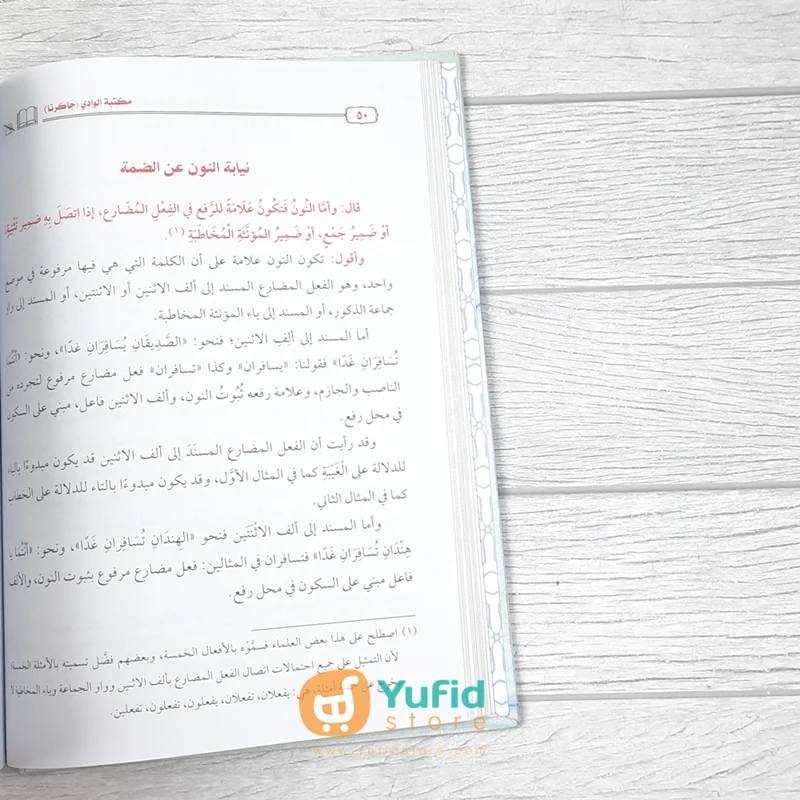 مكتبة الوادي (جاكرتا)
٥٠
نيابة النون عن الضمة
قال: وأمَّا النُونُ فَتَكُونُ عَلَامَةً للرَّفعِ في الفِعْلِ المُضَارعِ، إذا اتصَلَ بِهِ ضَمِيرُ تَثْنِيَةٍ،
أوْ ضَمِيرُ جَمْعٍ، أوْ ضَمِيرُ المؤنَّثَةِ الْمُخَاطَبَةِ (١).
وأقول: تكون النون علامة على أن الكلمة التي هي فيها مرفوعة في موضع
واحد، وهو الفعل المضارع المسند إلى ألف الاثنين أو الاثنتين، أو المسند إلى واو
جماعة الذكور، أو المسند إلى ياء المؤنثة المخاطبة.
أما المسند إلى ألفِ الاثنين؛ فنحو: «الصَّدِيقَانِ يُسَافِرَانِ غَدًا»، ونحو: «أنْتُمَا
تُسَافِرَانِ غَدًا» فقولنا: «يسافران» وكذا «تسافران» فعل مضارع مرفوع لتجرده من
الناصب والجازم، وعلامة رفعه ثُبُوتُ النون، وألف الاثنين فاعل، مبني على السكون
في محل رفع.
وقد رأيت أن الفعل المضارع المسنَدَ إلى ألف الاثنين قد يكون مبدوءًا بالياء
للدلالة على الْغَيْبَةِ كما في المثال الأوَّل، وقد يكون مبدوءًا بالتاء للدلالة على الخطاب
كما في المثال الثاني.
وأما المسند إلى ألف الاثْنَتَين فنحو «الهِندَانِ تُسَافِرانِ غَدًا»، ونحو: «أنْتُمَا يا
هِنْدَانِ تُسَافِرَانِ غَدًا» فتسافران في المثالين: فعل مضارع مرفوع بثبوت النون، والألف
فاعل مبني على السكون في محل رفع.
(١) اصطلح على هذا بعض العلماء فسمَّوْه بالأفعال الخمسة، وبعضهم فضَّل تسميته بالأمثلة الخمسة؛
لأن التمثيل على جميع احتمالات اتصال الفعل المضارع بألف الاثنين وواو الجماعة وياء المخاطبة لا
عن أمثلة، هي: يفعلان، تفعلان، يفعلون، تفعلون، تفعلين.
Yufid
store
www.yufidstore.com